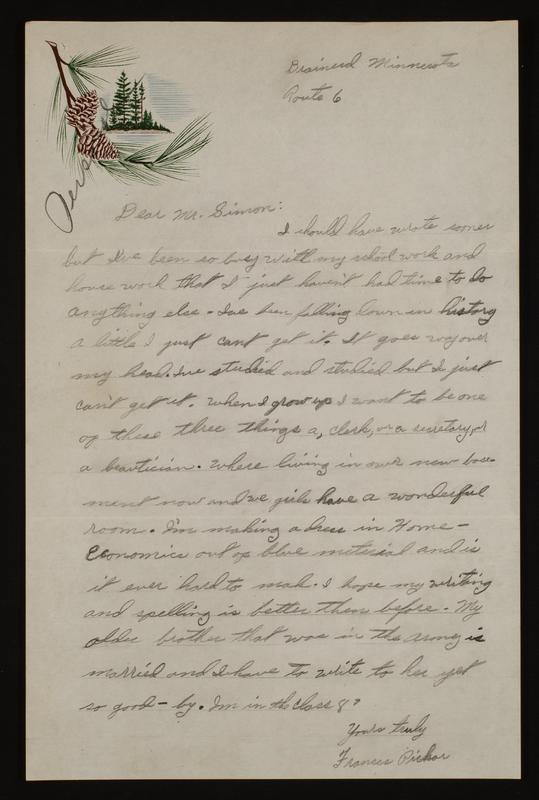 Brainerd Minnesota
Route 6
Dear Mr. Simon:
I should have wrote sooner
but I've been so busy with my school work and
house work that I just haven't had time to do
anything else - I've been falling down in history
a little I just can't get it. It goes way over
my head. I've studied and studied but I just
can't get it. When I grow up I want to be one
of these three things a, clerk, or a secretary, or
a beautician. Where living in our new base-
ment now and we girls have a wonderful
room. I'm making a dress in Home-
Economics out of blue meterial and is
it ever hard to mak. I hope my writing
and spelling is better then before. My
older brother that was in the army is
married and I have to write to her yet
so good-by. I'm in the class 8?
Yours truly
Frances Pichar